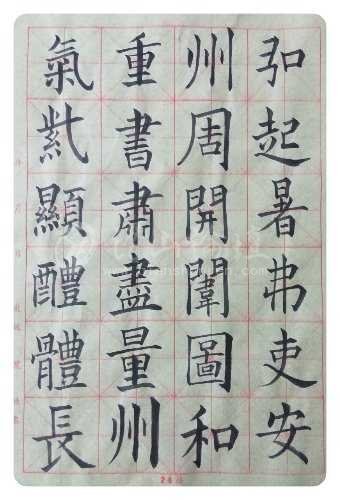 弘起暑弗吏安
州周開闈圖和
重書肅盡量州
氣顯醴體長